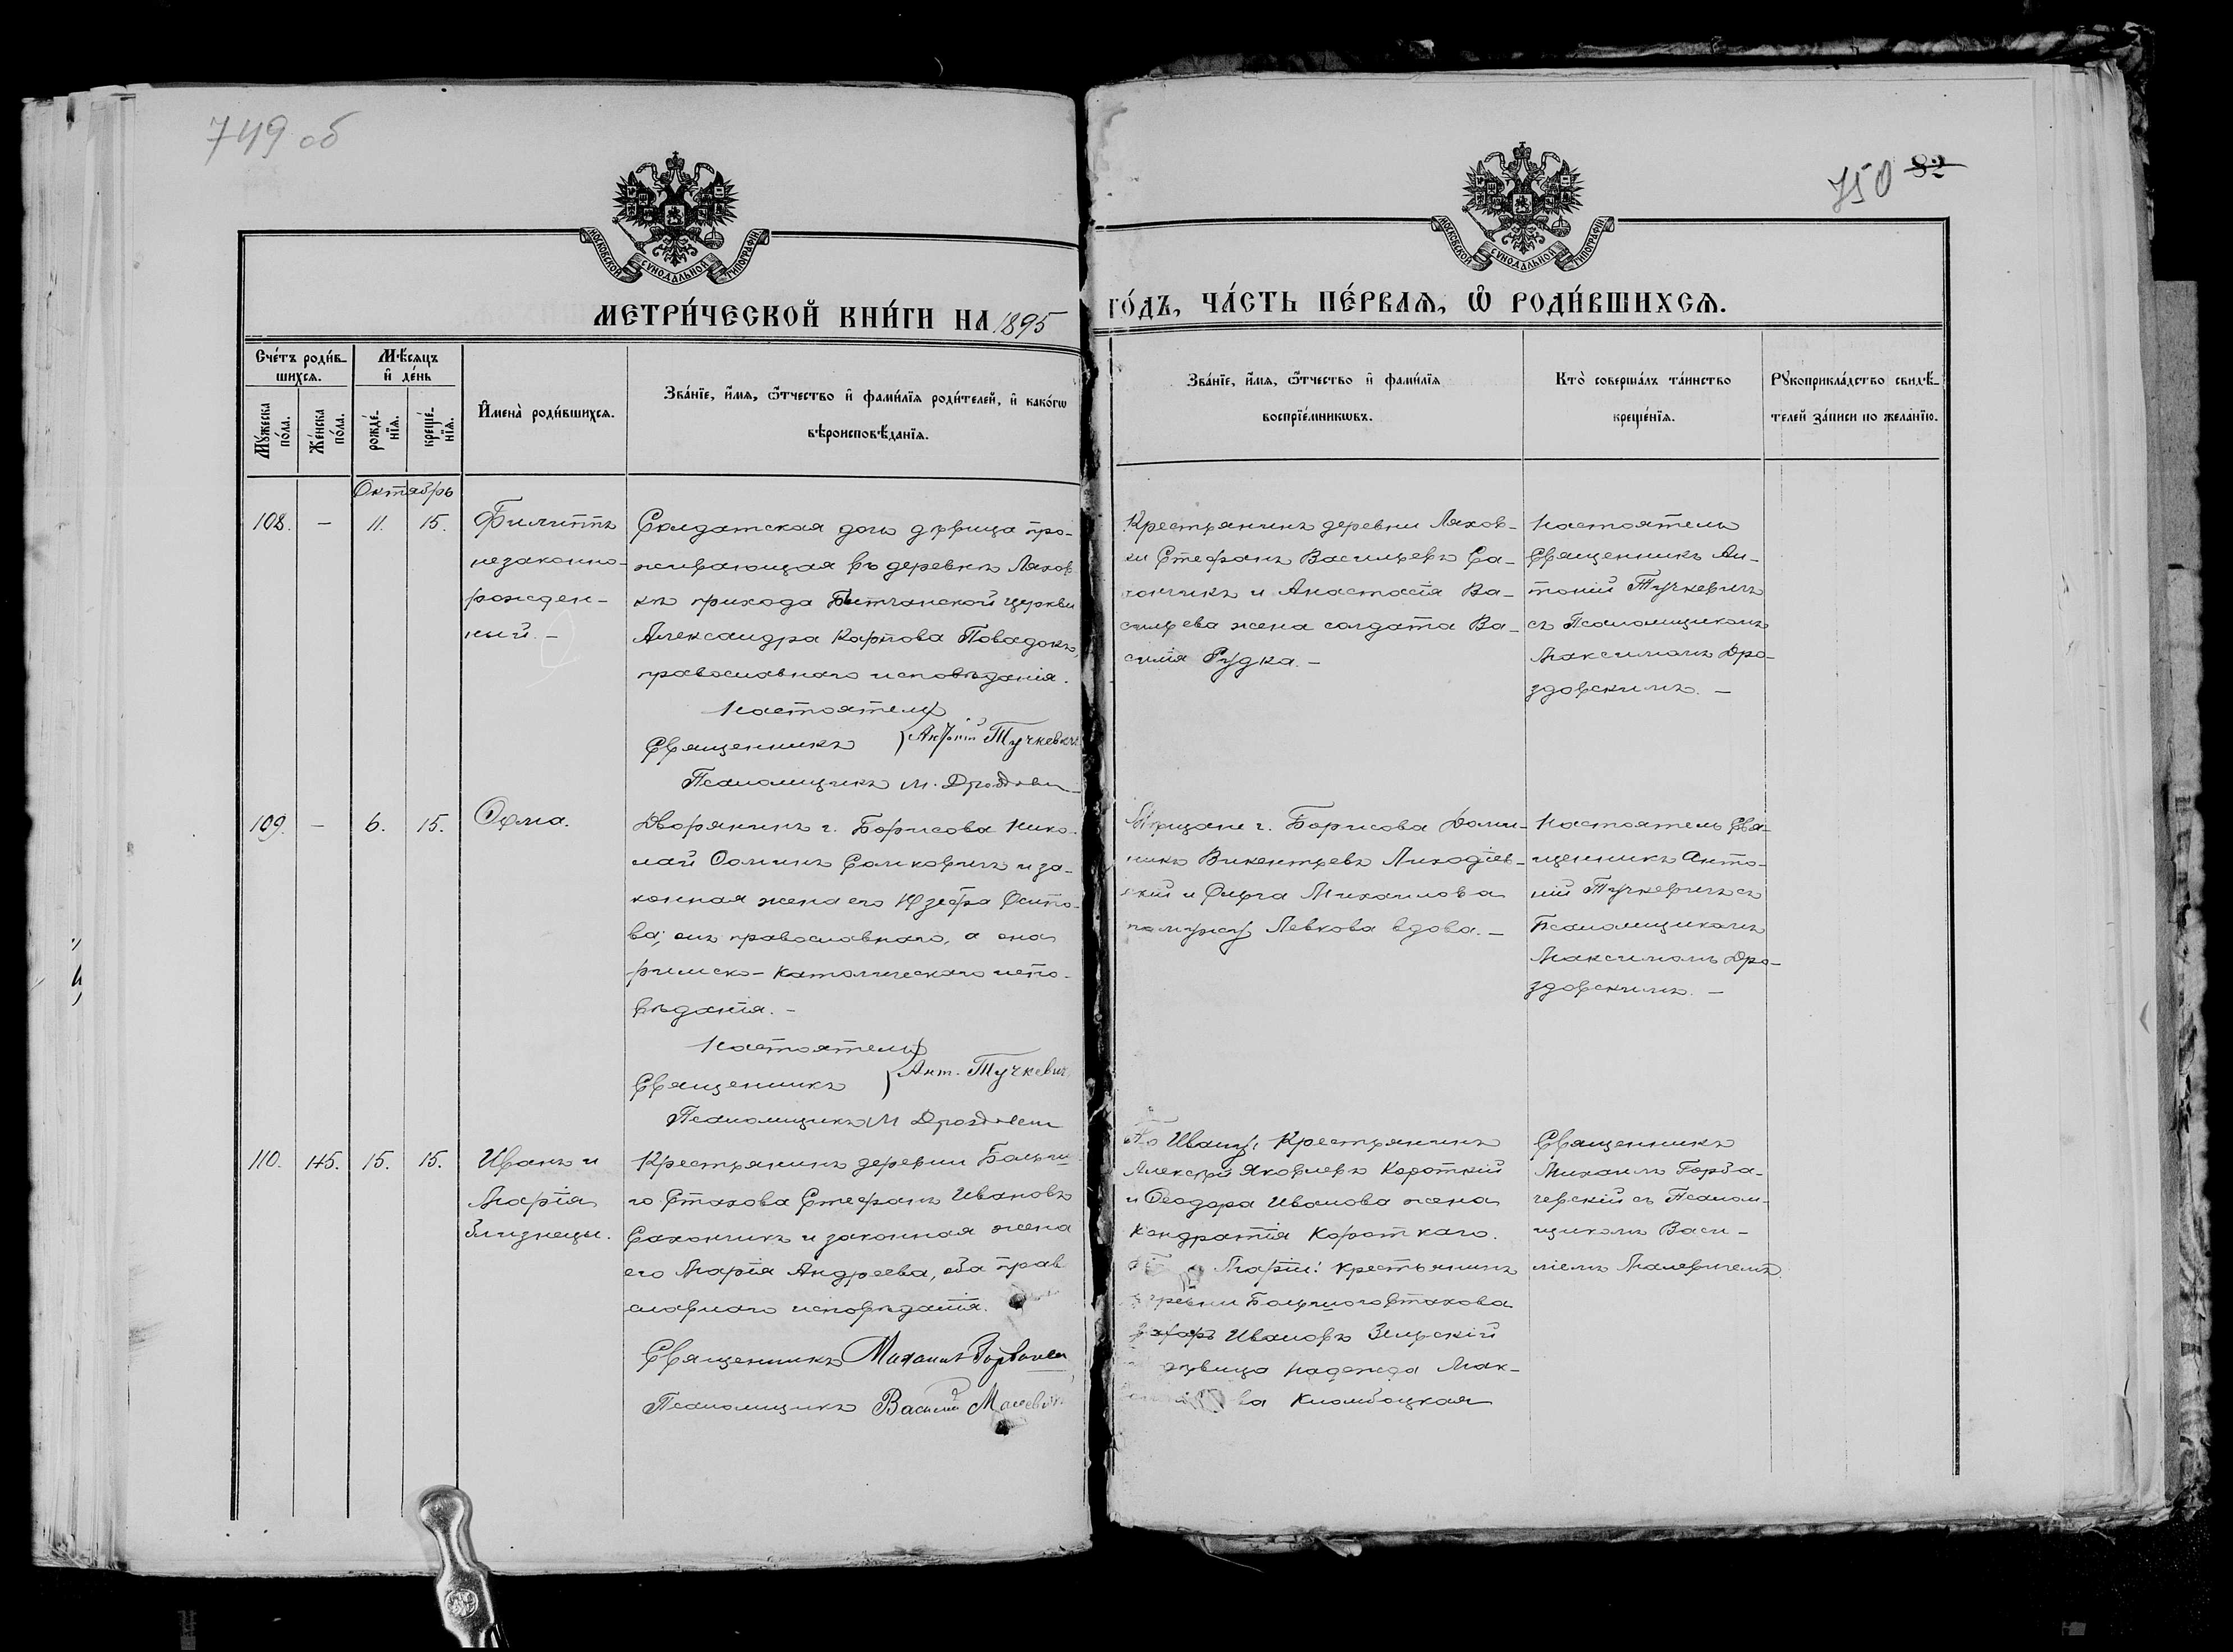 749 об
750 82
МОСКОВСКОЙ СѴНОДАЛЬНОЙ ТИПОГРАФІИ
МОСКОВСКОЙ СѴНОДАЛЬНОЙ ТИПОГРАФІИ
МЕТРИ́ЧЕСКОЙ КНИ́ГИ НА 1895
ГО́ДЪ, ЧА́СТЬ ПЕ́РВАѦ, Ѡ РОДИ́ВШИХСѦ.
Сче́тъ роди́в-
шихсѧ.
Мꙋ́жеска по́ла.
Же́нска по́ла.
Мѣ́сѧцъ
и де́нь
рожде́-
нїѧ.
креще́-
нїѧ.
Имена̀ роди́вшихсѧ.
Зва́нїе, и́мѧ, ѻ́тчество и фами́лїѧ роди́телей, и како́гѡ
вѣроисповѣ́данїѧ.
Зва́нїе, и́мѧ, ѻ́тчество и фами́лїѧ
воспрїе́мникѡвъ.
Кто̀ соверша́лъ та́инство
креще́нїѧ.
Рꙋкоприкла́дство свидѣ́-
телей за́писи по жела́нїю.
Октябрь
108. — 11. 15.
Филиппъ
незаконно-
рожден-
ный. —
Солдатская дочь дѣвица про-
живающая въ деревнѣ Ляхов-
кѣ прихода Бытчанской церкви
Александра Карпова Повадокъ,
православнаго исповѣданія.
Настоятель
Священникъ Антоній Тучкевичъ
Псаломщикъ М. Дроздовск
Крестьянинъ деревни Ляхов-
ки Стефанъ Васильевъ Са-
хончикъ и Анастасія Ва-
сильева жена солдата Ва-
силія Рудка. —
Настоятель
Священникъ Ан-
тоній Тучкевичъ
съ Псаломщикомъ
Максимомъ Дро-
здовскимъ. —
109. — 6. 15.
Ѳома.
Дворянинъ г. Борисова Нико-
лай Ѳоминъ Самковичъ и за-
конная жена его Юзефа Осипо-
ва; онъ православнаго, а она
римско-католическаго испо-
вѣданія. —
Настоятель
Священникъ Ант. Тучкевич
Псаломщикъ М Дроздовск
Мѣщане г. Борисова Доми-
никъ Викентьевъ Лиходіев-
скій и Ольга Михаилова
по мужу Левкова вдова. —
Настоятель Свя-
щенникъ Анто-
ній Тучкевичъ съ
Псаломщикомъ
Максимомъ Дро-
здовскимъ. —
110. 145. 15. 15.
Иванъ и
Марія
близнецы.
Крестьянинъ деревни Больша-
го Стахова Стефанъ Ивановъ
Сахончикъ и законная жена
его Марія Андреева, оба прав
славнаго исповѣданія.
Священникъ Михаилъ Горбачев
Псаломщикъ Василій Малевич
По Ивану: Крестьянинъ
Алексѣй Яковлевъ Короткій
и Ѳеодора Иванова жена
Кондратія Короткаго.
Маріи: крестьянинъ
деревни Большого Стахова
Захаръ Ивановъ Зенскій
дѣвица Надежда Мак-
ва Кномбоцкая
Священникъ
Михаилъ Горба-
чевскій съ Псалом-
щикомъ Васи-
ліемъ Малевичемъ.